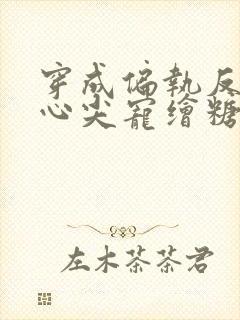 穿成偏執反
心尖寵繪糖
左木茶茶君